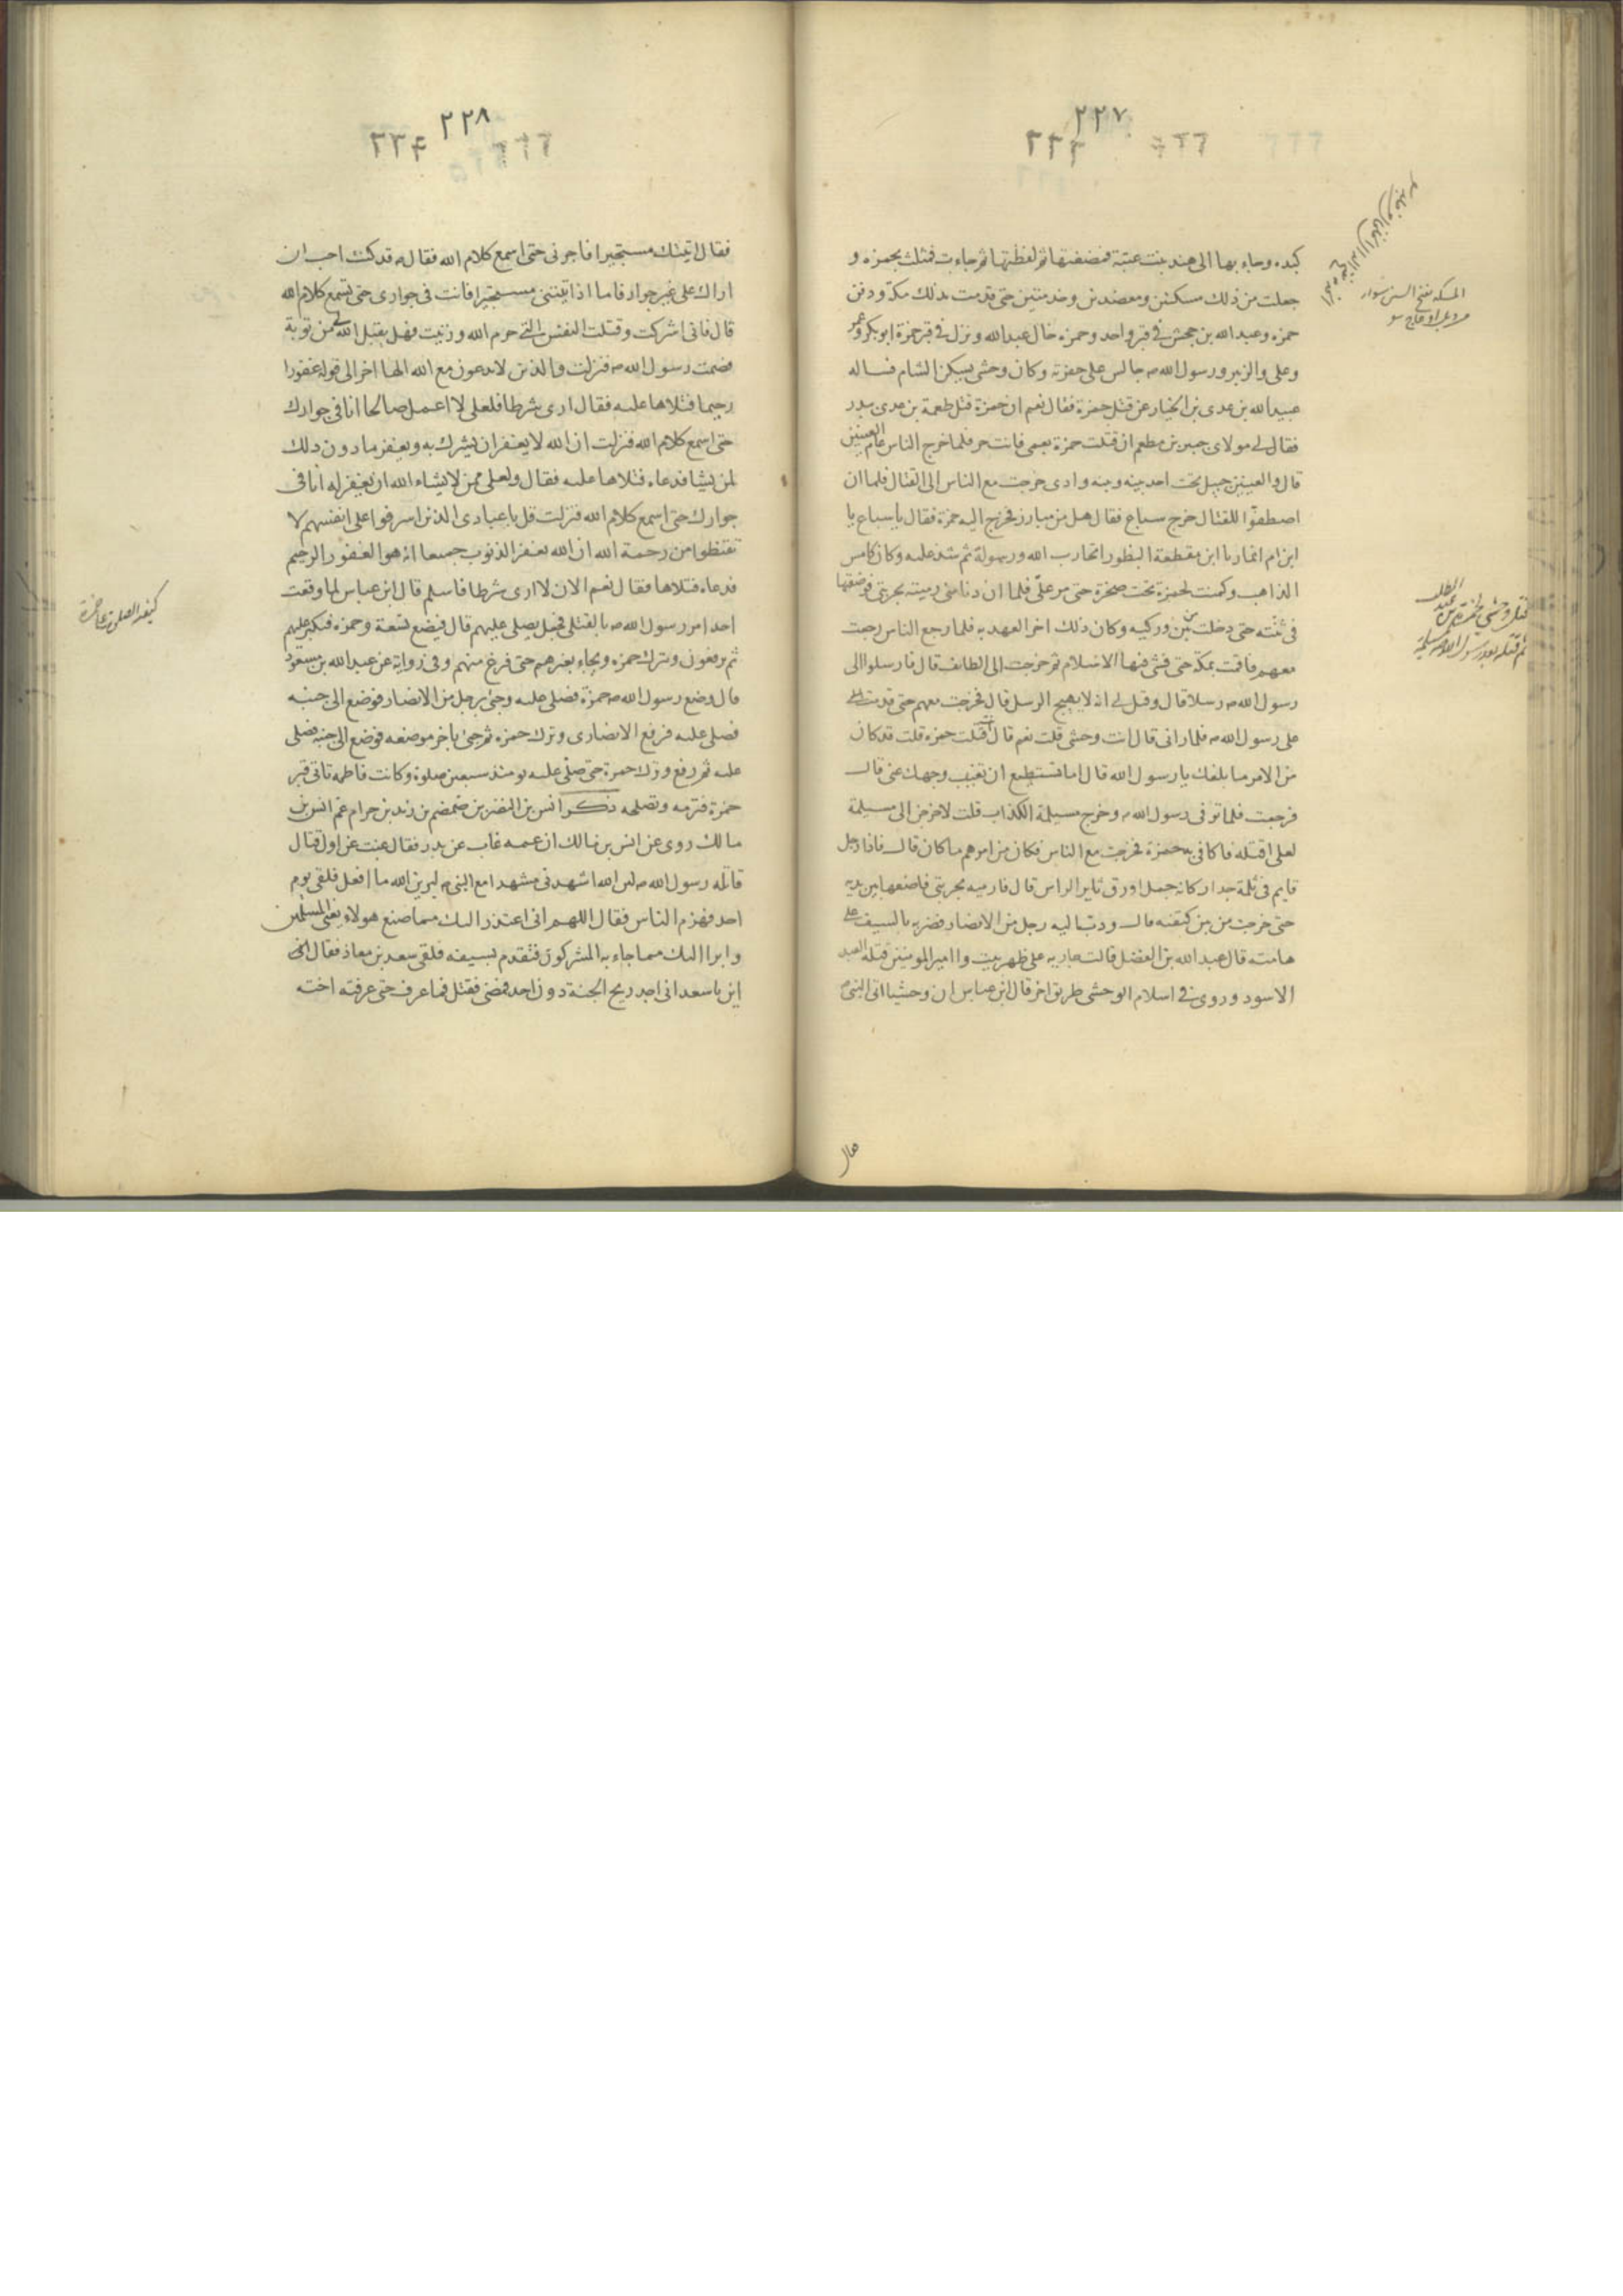 ٢٢٧
٢٢٣
كبده وجاء بها الى هند بنت عتبة فمضغتها ثم لفظتها ثم جاءت فمثلت بحمزه و
جعلت من ذلك مسكتين ومعضدين وخدمتين حتى قدمت بذلك مكة ودفن
حمزه وعبد الله بن جحش فى قبر واحد وحمزه خال عبد الله ونزل فى قبر حمزة ابو بكر وعمر
وعلى والزبير ورسول الله ص جالس على حفرته وكان وحشى يسكن الشام فساله
عبيد الله بن عدى بن الخيار عن قتل حمزة فقال نعم ان حمزة قتل طعمة بن عدى ببدر
فقال لى مولاى جبير بن مطعم ان قتلت حمزة بعمى فانت حر فلما خرج الناس عام العينين
قال والعينين جبل تحت احد بينه وبينه وادى خرجت مع الناس الى القتال فلما ان
اصطفوا للقتال خرج سباع فقال هل من مبارز فخرج اليه حمزة فقال يا سباع يا
ابن ام انمار يا ابن مقطعة البظور اتحارب الله ورسوله ثم شد عليه وكان كامس
الذاهب وكمنت لحمزة تحت صخرة حتى مر على فلما ان دنا منى رميته بحربتى فوضعتها
فى ثنته حتى دخلت بين وركيه وكان ذلك اخر العهد به فلما رجع الناس رجعت
معهم فاقمت بمكة حتى فشى فيها الاسلام ثم خرجت الى الطائف قال فارسلوا الى
رسول الله ص رسلا قال وقيل لى انه لا يهيج الرسل قال فخرجت معهم حتى قدمت
على رسول الله ص فلما رانى قال انت وحشى قلت نعم قال انت قتلت حمزه قلت قد كان
من الامر ما بلغك يا رسول الله قال اما تستطيع ان تغيب وجهك عنى قال
فرجعت فلما توفى رسول الله ص وخرج مسيلمة الكذاب قلت لاخرجن الى مسيلمة
لعلى اقتله فاكافى به حمزة فخرجت مع الناس فكان من امرهم ما كان قال فاذا رجل
قايم فى ثلمة جدار كانه جمل اورق ثاير الراس قال فارميه بحربتى فاضعها بين ثدييه
حتى خرجت من بين كتفيه قال ودب اليه رجل من الانصار فضربه بالسيف على
هامته قال عبد الله بن الفضل قالت جارية على ظهر بيت وا امير المومنين قتله العبد
الاسود وروى فى اسلام الوحشى طريق اخر قال ابن عباس ان وحشيا اتى النبى ص
المسكة بفتح السين سوار
فقال
٢٢٨
٢٢٤
فقال اتيتك مستجيرا فاجرنى حتى اسمع كلام الله فقال ص قد كنت احب ان
اراك على غير جوار فاما اذا اتيتنى مستجيرا فانت فى جوارى حتى تسمع كلام الله
قال فانى اشركت وقتلت النفس التى حرم الله وزنيت فهل يقبل الله من توبة
فصمت رسول الله ص فنزلت والذين لا يدعون مع الله الها اخر الى قوله غفورا
رحيما فتلاها عليه فقال ارى شرطا فلعلى لا اعمل صالحا انا فى جوارك
حتى اسمع كلام الله فنزلت ان الله لا يغفر ان يشرك به ويغفر ما دون ذلك
لمن يشا فدعاه فتلاها عليه فقال ولعلى ممن لا يشاء الله ان يغفر له انا فى
جوارك حتى اسمع كلام الله فنزلت قل يا عبادى الذين اسرفوا على انفسهم لا
تقنطوا من رحمة الله ان الله يغفر الذنوب جميعا انه هو الغفور الرحيم
فدعاه فتلاها فقال نعم الان لا ارى شرطا فاسلم قال ابن عباس لما وقعت
احد امر رسول الله ص بالقتلى فجعل يصلى عليهم قال فيضع تسعة وحمزه فيكبر عليهم
ثم يرفعون ويترك حمزه ويجاء بغيرهم حتى فرغ منهم وفى رواية عن عبد الله بن مسعود
قال وضع رسول الله ص حمزة فصلى عليه وجئ برجل من الانصار فوضع الى جنبه
فصلى عليه فرفع الانصارى وترك حمزه ثم جئ باخر موضعه فوضع الى جنبه فصلى
عليه ثم رفع وترك حمزة حتى صلى عليه يومئذ سبعين صلوة وكانت فاطمه تاتى قبر
حمزة فترمه وتصلحه ذكر انس بن النضر بن ضمضم بن زيد بن حرام عم انس بن
مالك روى عن انس بن مالك ان عمه غاب عن بدر فقال غبت عن اول قتال
قاتله رسول الله ص لئن الله اشهدنى مشهدا مع النبى ص ليرين الله ما افعل فلقى يوم
احد فهزم الناس فقال اللهم انى اعتذر اليك مما صنع هولاء يعنى المسلمين
وابرا اليك مما جاء به المشركون فتقدم بسيفه فلقى سعد بن معاذ فقال الى
اين يا سعد انى اجد ريح الجنة دون احد فمضى فقتل فما عرف حتى عرفته اخته